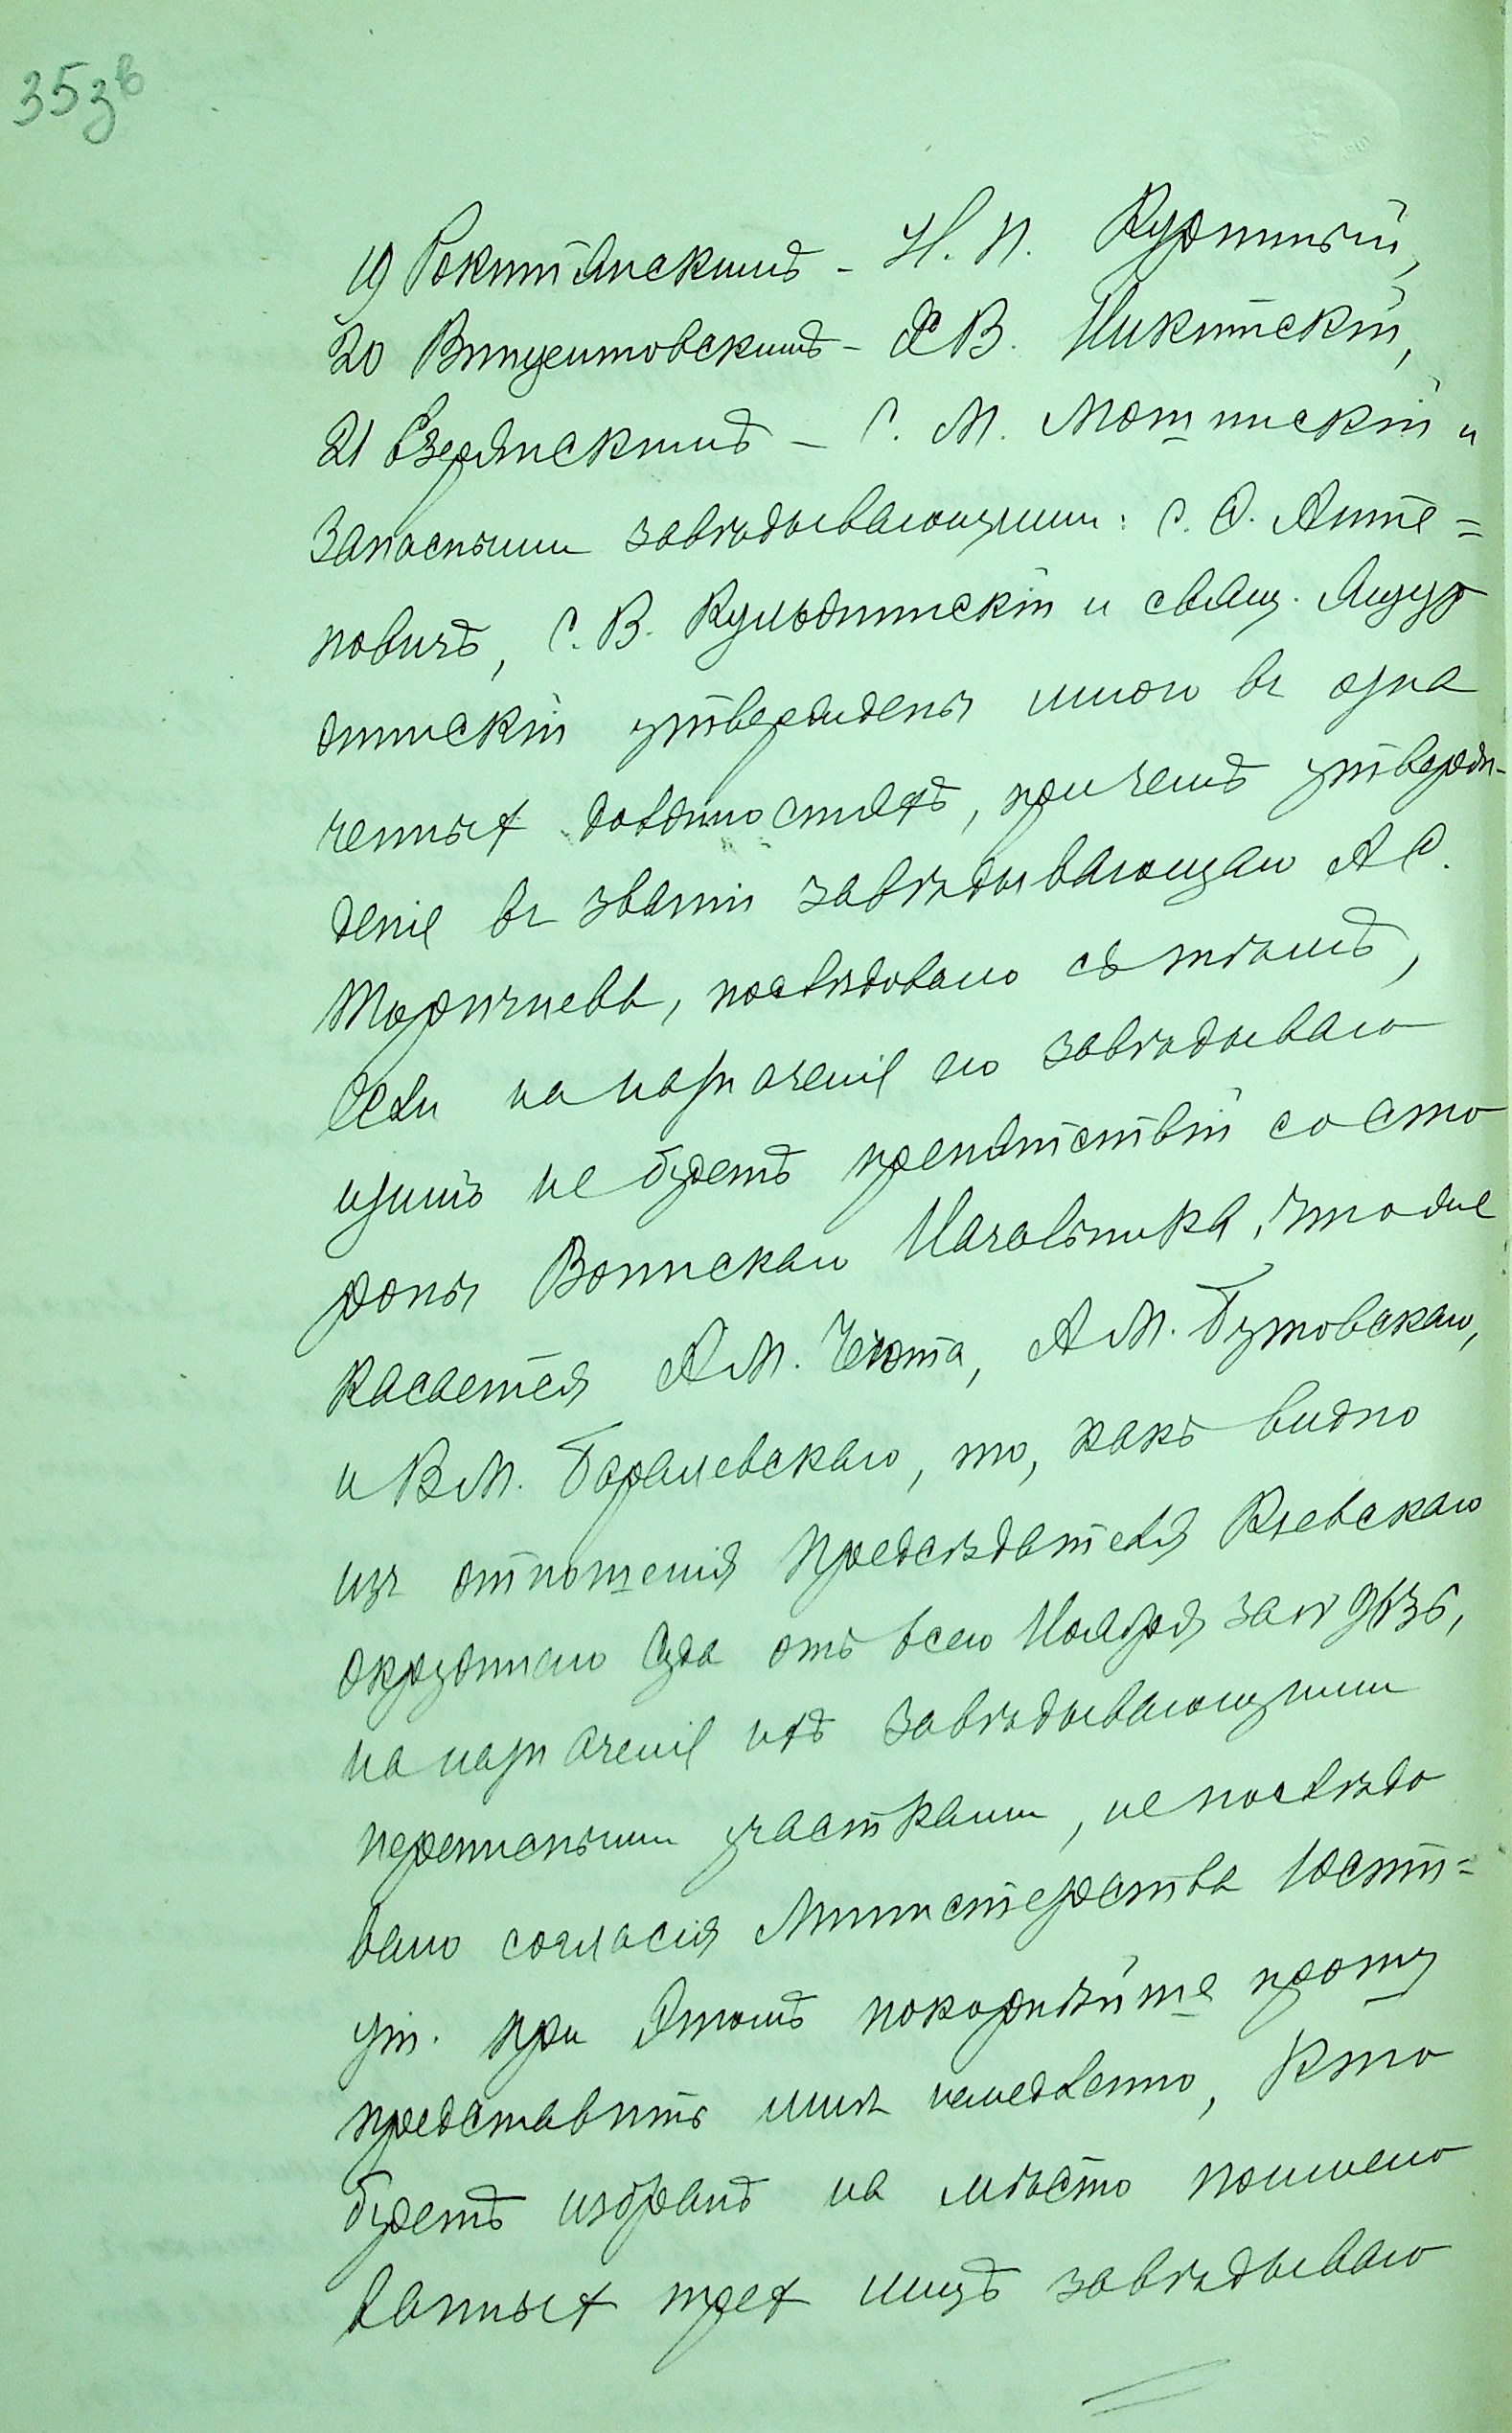 353в
19 Рокитянскимъ - Н. П. Куртый,
20 Винцентовскимъ - Ф В. Никитскій,
21 Езерянскимъ - С. М. Мошинскій и
Запасными завѣдывающими: С. О. Анте=
новичъ, С. В. Кульжинскій и свящ.
жинскій утверждены мною въ озна
ченныхъ должностяхъ, при чемъ утверж-
деніе въ званіи завѣдывающаго А С.
послѣдовало съ тѣмъ,
если на назначеніе его завѣдываю
щимъ не будетъ препятствій со сто
роны Воинскаго Начальника, что же
касается А М. А М. Бутовскаго,
и В М. Баралевскаго, то, какъ видно
изъ отношенія Предсѣдателя Кіевскаго
окружнаго Суда отъ всего Ноября за № 9636,
на назначеніе ихъ завѣдывающими
переписными участками, не послѣдо
вало согласія Министерства Юсти=
ціи. При этомъ покорнѣйше прошу
представить мнѣ немедленно, Кто
будетъ избранъ на мѣсто поимено
ванныхъ трехъ лицъ завѣдываю